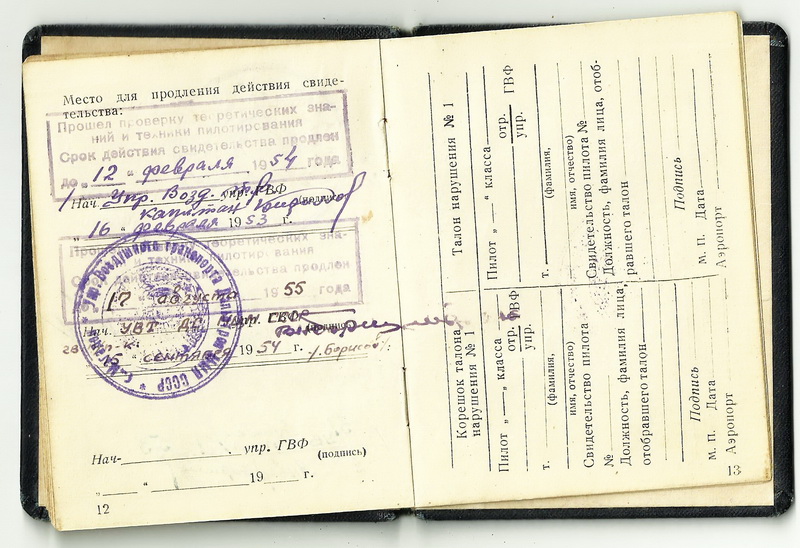 Место для продления действия свиде-
тельства:
Прошел проверку теоретических зна-
ний и техники пилотирования
Срок действия свидетельства продлен
до „12“ февраля 1954 года
Нач. Упр. Возд. упр. ГВФ
капитан
„16“ февраля 1953 г.
теоретических зна-
техники пилотирования
свидетельства продлен
17 августа 1955 года
Нач. УВТ ДС
сентября 1954 г. /.Борисов/
Нач- упр. ГВФ
(подпись)
„ “ 19 г.
12
Талон нарушения № 1
Пилот „ “ класса отр. ГВФ
упр.
т.
(фамилия,
имя, отчество)
Свидетельство пилота №
Должность, фамилия лица, отоб-
равшего талон
Подпись
М. П. Дата
Аэропорт
Корешок талона
нарушения № 1
Пилот „ “ класса отр. ГВФ
упр.
т.
(фамилия,
имя, отчество)
Свидетельство пилота
№
Должность, фамилия лица,
отобравшего талон
Подпись
М. П. Дата
Аэропорт
13